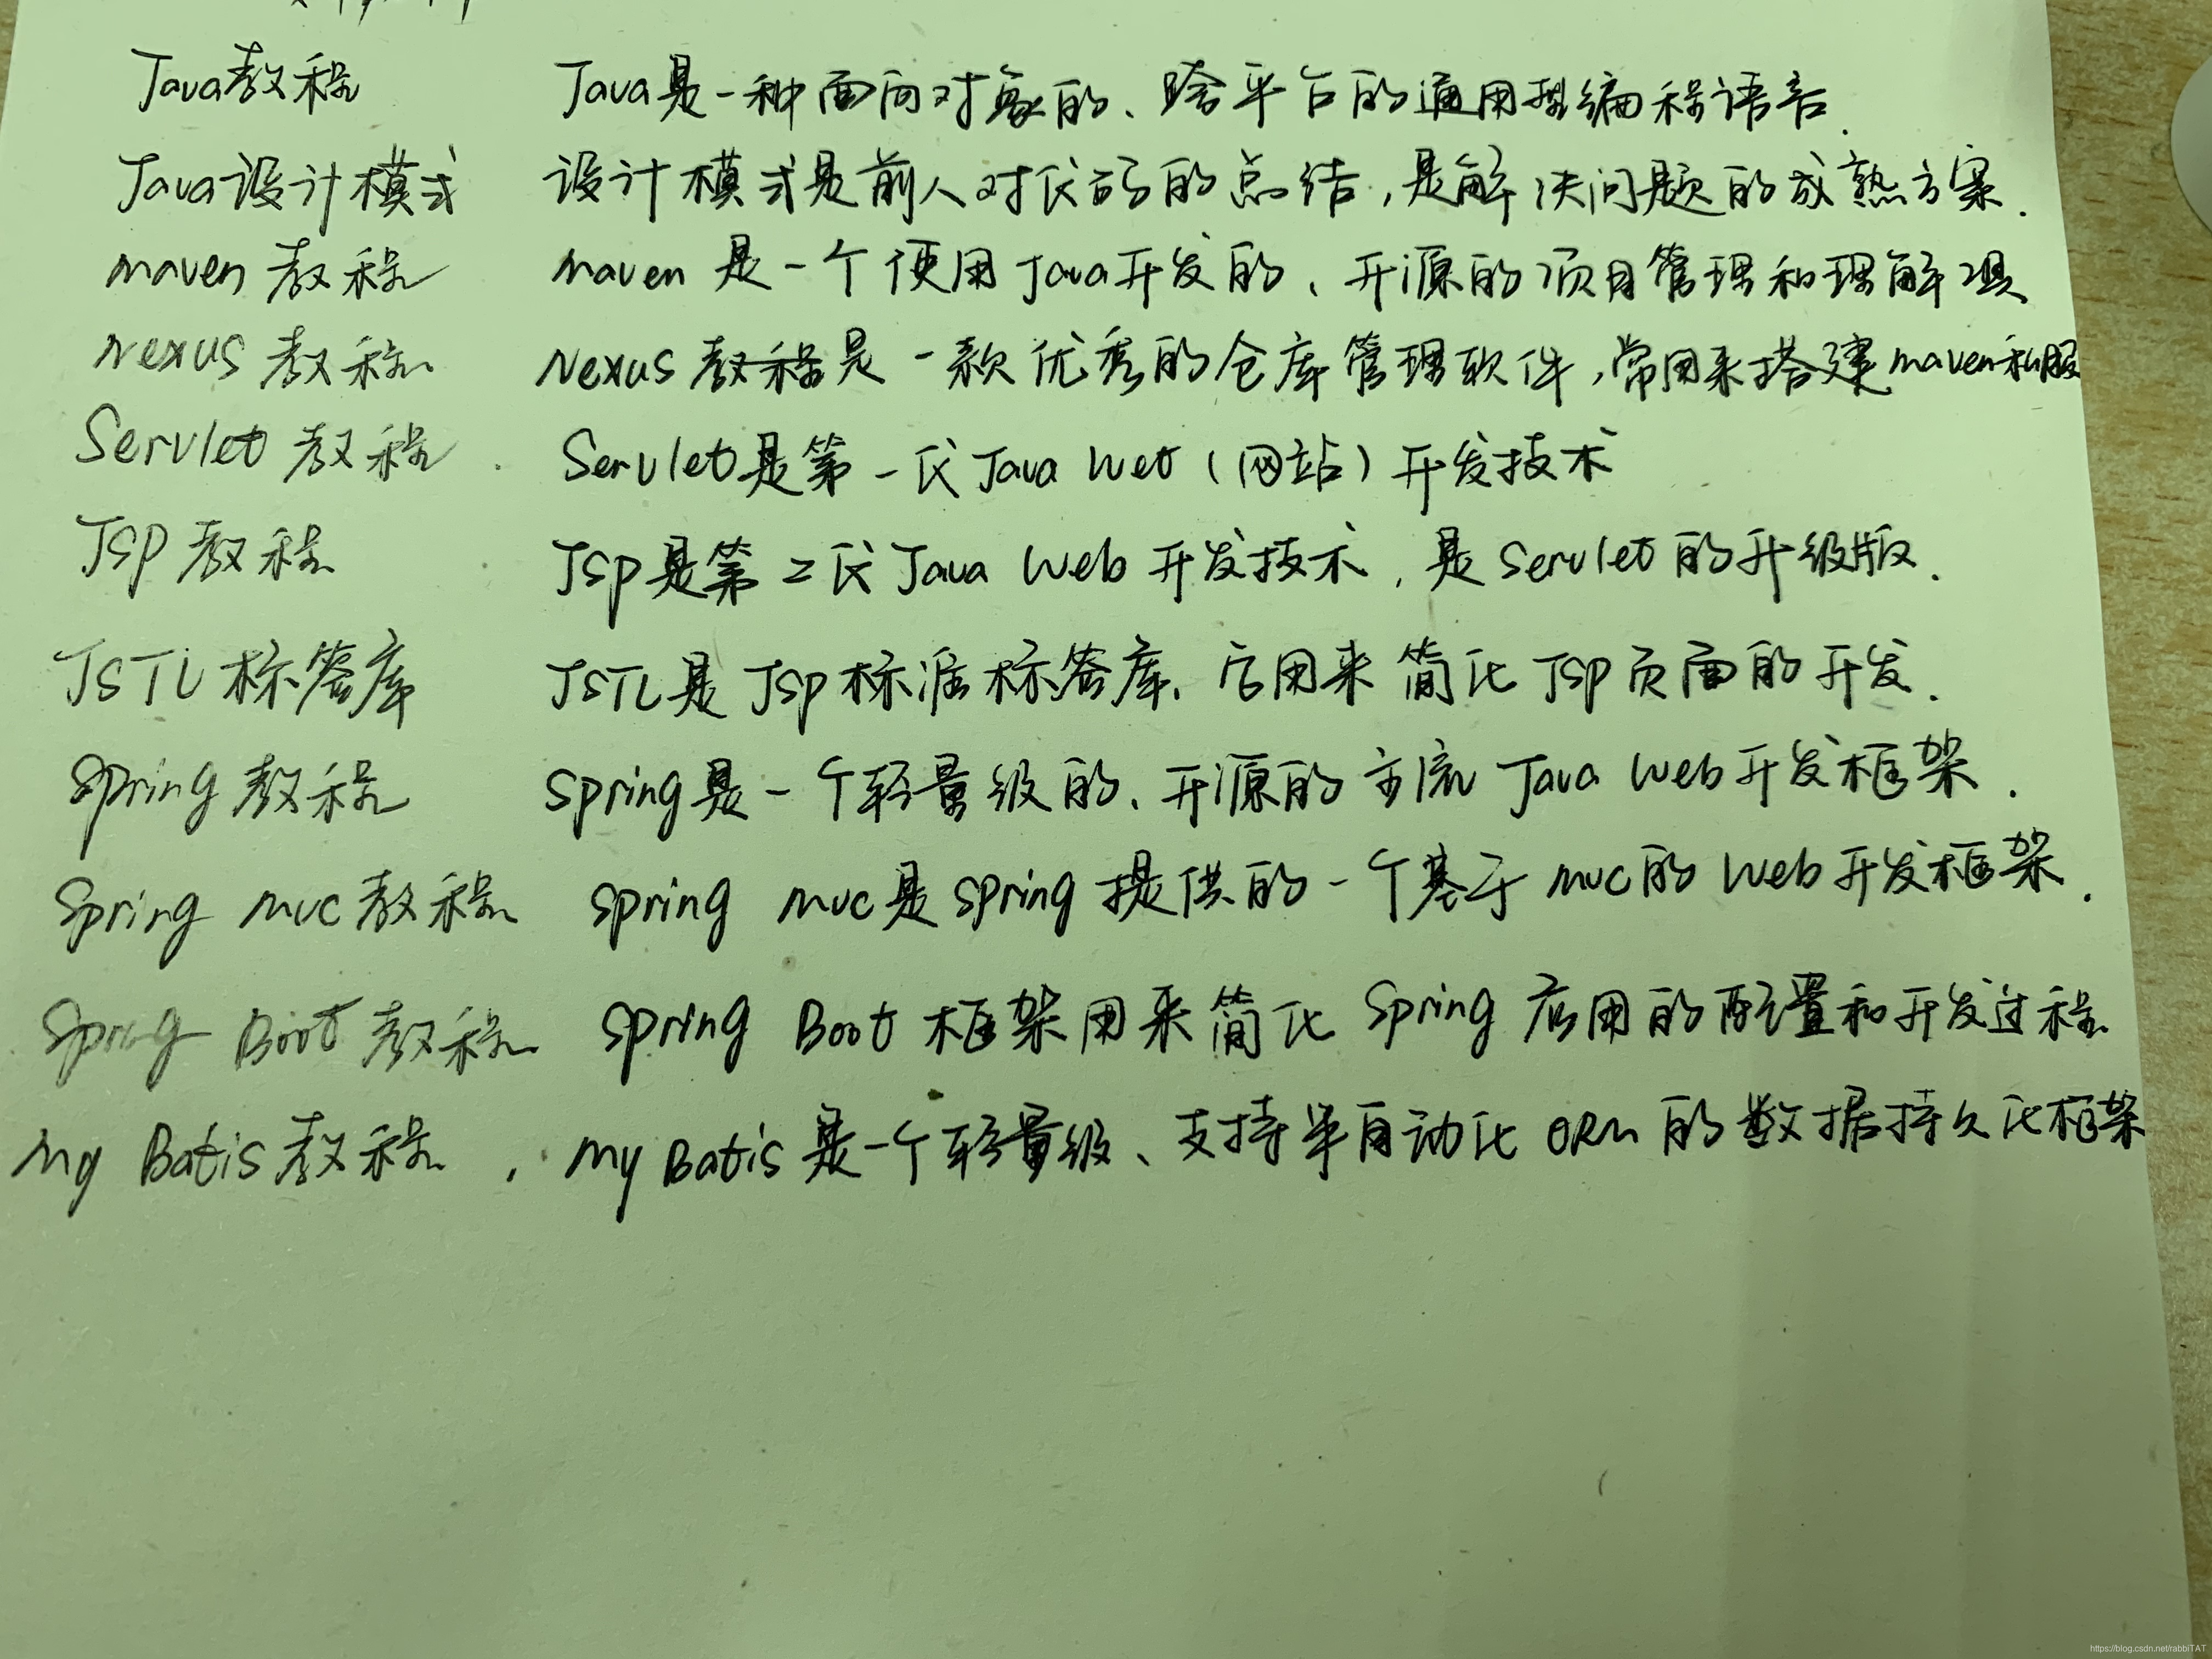 Java教程 Java是一种面向对象的、跨平台的通用型编程语言.
Java设计模式 设计模式是前人对代码的总结,是解决问题的成熟方案.
maven 教程 maven 是一个使用Java开发的、开源的项目管理和理解
Nexus 教程 Nexus 教程是一款优秀的仓库管理软件,常用来搭建maven私服
Servlet 教程. Servlet是第一代Java Web(网站)开发技术
JSP 教程 JSP是第二代Java Web 开发技术,是Servlet的升级版.
JSTL标签库 JSTL是JSP标准标签库、它用来简化JSP页面的开发.
Spring 教程 Spring是一个轻量级的、开源的主流 Java Web开发框架.
Spring mvc教程 spring mvc是spring提供的一个基于mvc的Web开发框架.
Spring Boot 教程 Spring Boot 框架用来简化 Spring 应用的配置和开发过程
My Batis教程 , My Batis是一个轻量级、支持半自动化 ORM 的数据持久化框架
https://blog.csdn.net/rabbiTAT